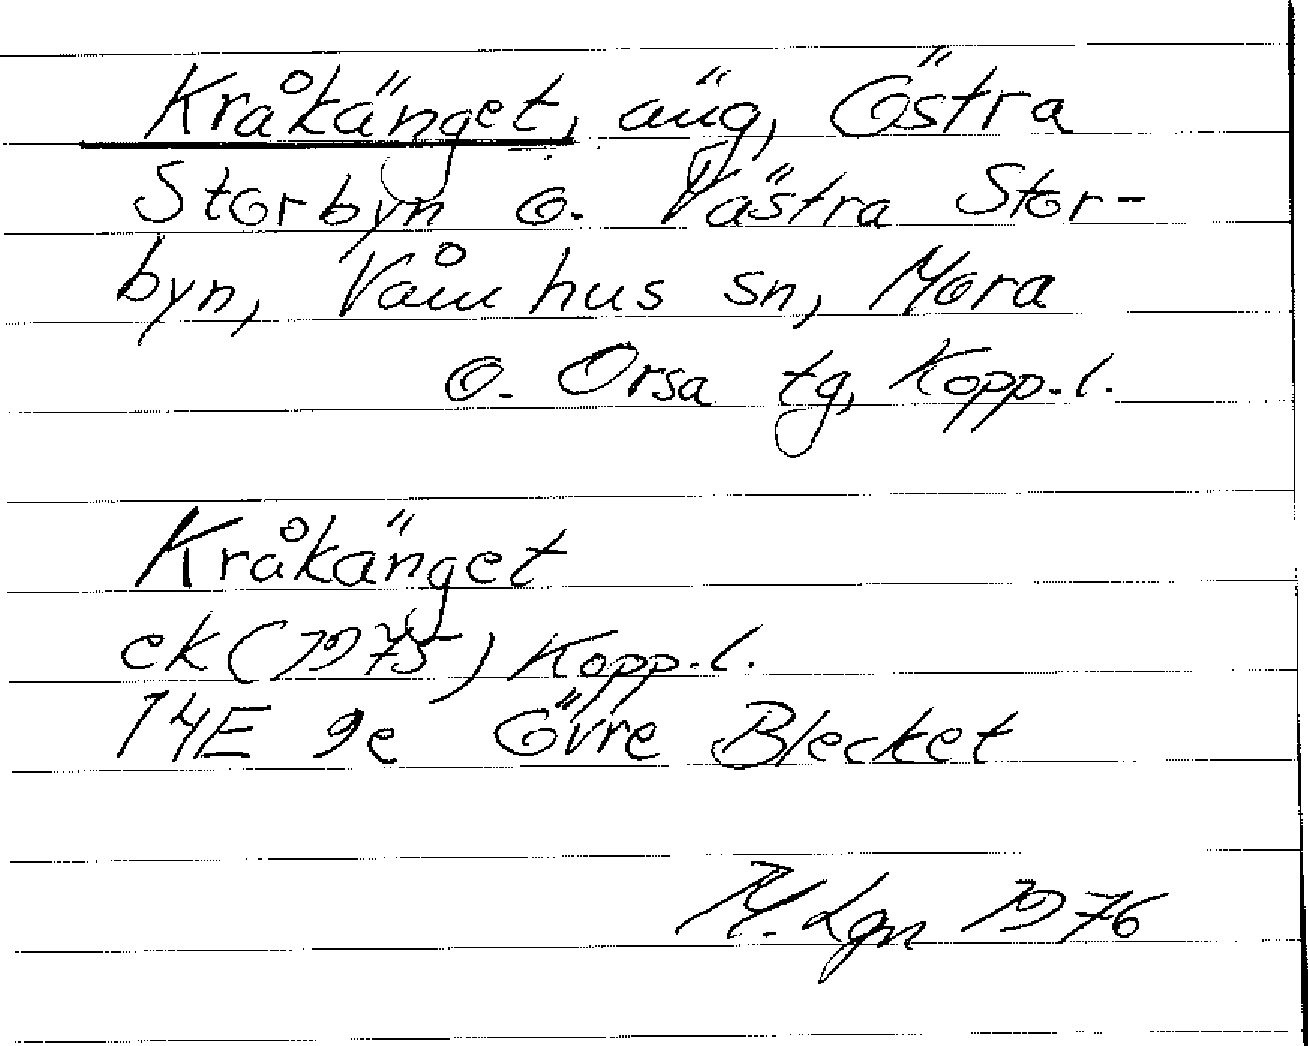 Kråkänget, äng, Östra
Storbyn o. Västra Stor-
byn, Våmhus sn, Mora
o. Orsa tg, Kopp. l.
Kråkänget
ek (1975) Kopp. l.
14E 9e Övre Blecket
M. Lgn 1976